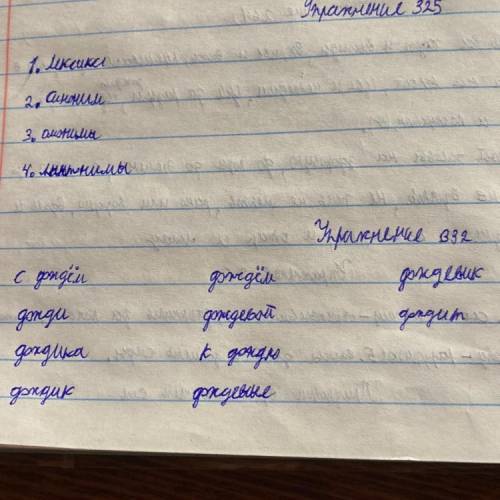 Упражнение 325
1. Лексика
2. Синоним
3. омонимы
4. Антонимы
Упражнение 332
с дождём дождём дождевик
дожди дождевой дождит
дождика к дождю
дождик дождевые